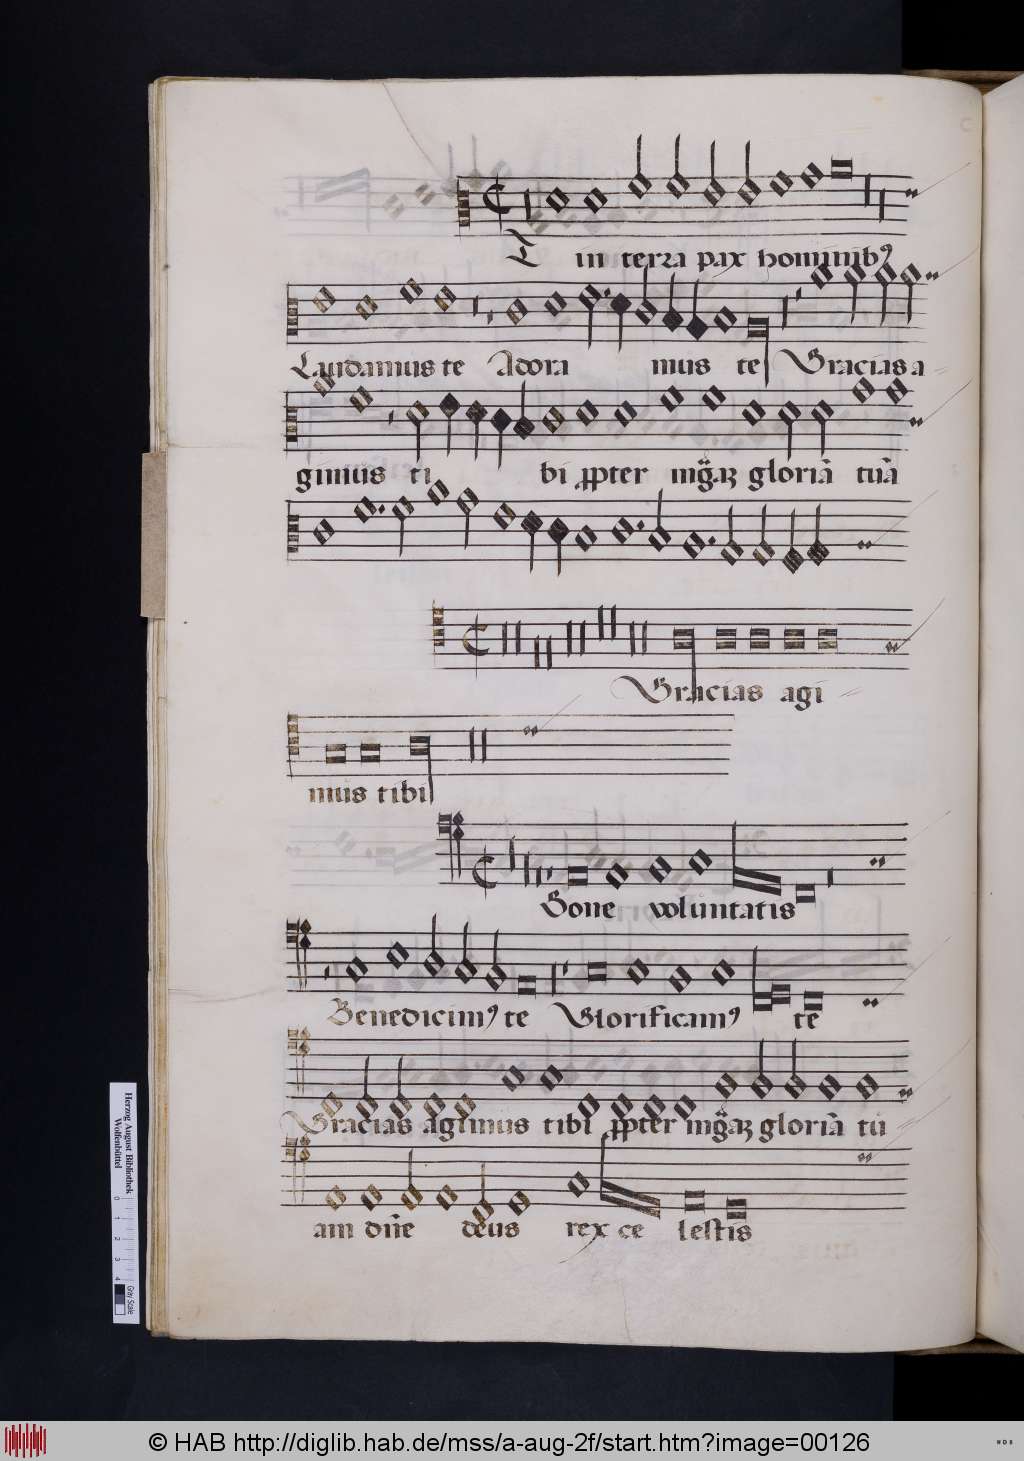 Et in terra pax hominibꝰ
Laudamus te Adora mus te Gracias a-
gimus ti bi ꝓpter mg̃aʒ gloriã tuã
Gracias agi-
mus tibi
Bone voluntatis
Benedicimꝰ te Glorificamꝰ te
Gracias agimus tibi ꝓpter mg̃aʒ gloriã tu
am dñe deus rex ce lestis
Herzog August Bibliothek
Wolfenbüttel
0 1 2 3 4 Gray Scale
© HAB http://diglib.hab.de/mss/a-aug-2f/start.htm?image=00126